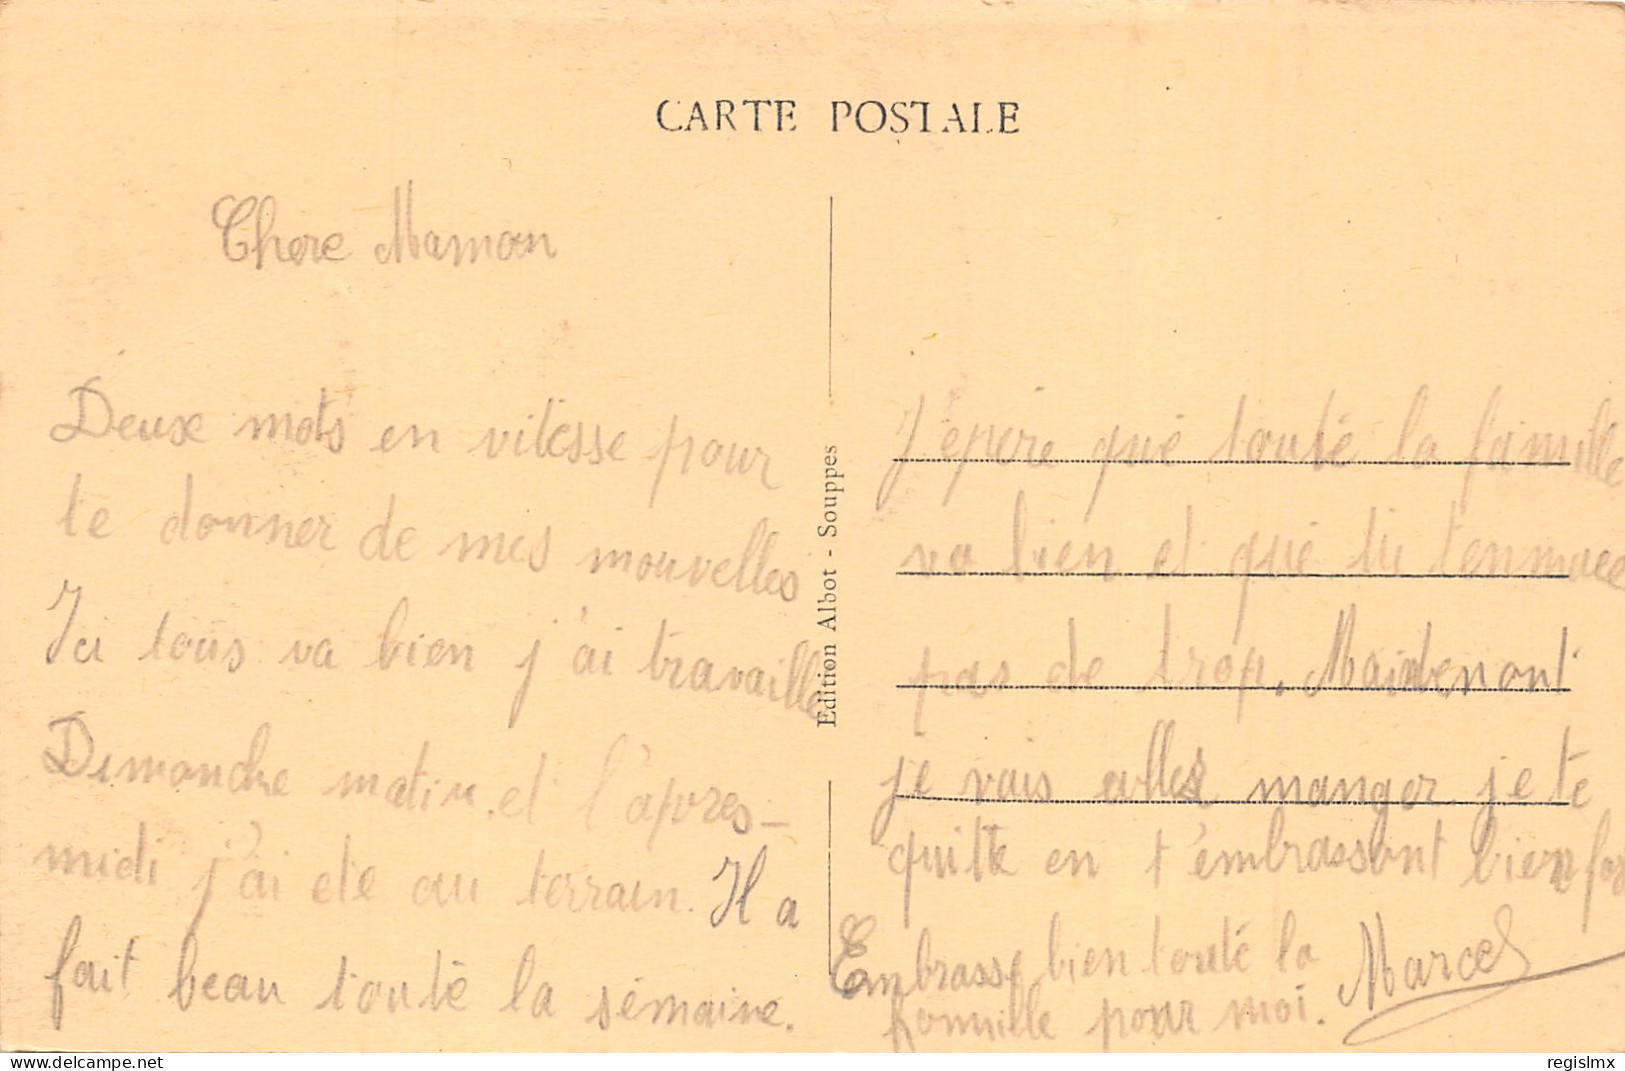 CARTE POSTALE
Chere Maman
Deux mots en vitesse pour
te donner de mes nouvelles
Ici tous va bien j'ai travaille
Dimanche matin et l'apres-
midi j'ai ete au terrain. Il a
fait beau toute la semaine.
Edition Albot - Souppes
J'epere que toute la famille
va bien et que tu t'ennuiee
pas de trop. Maintenant
je vais aller manger je te
quitte en t'embrassant bien for
Embrasse bien toute la
famille pour moi. Marcel
delcampe.net
regislmx